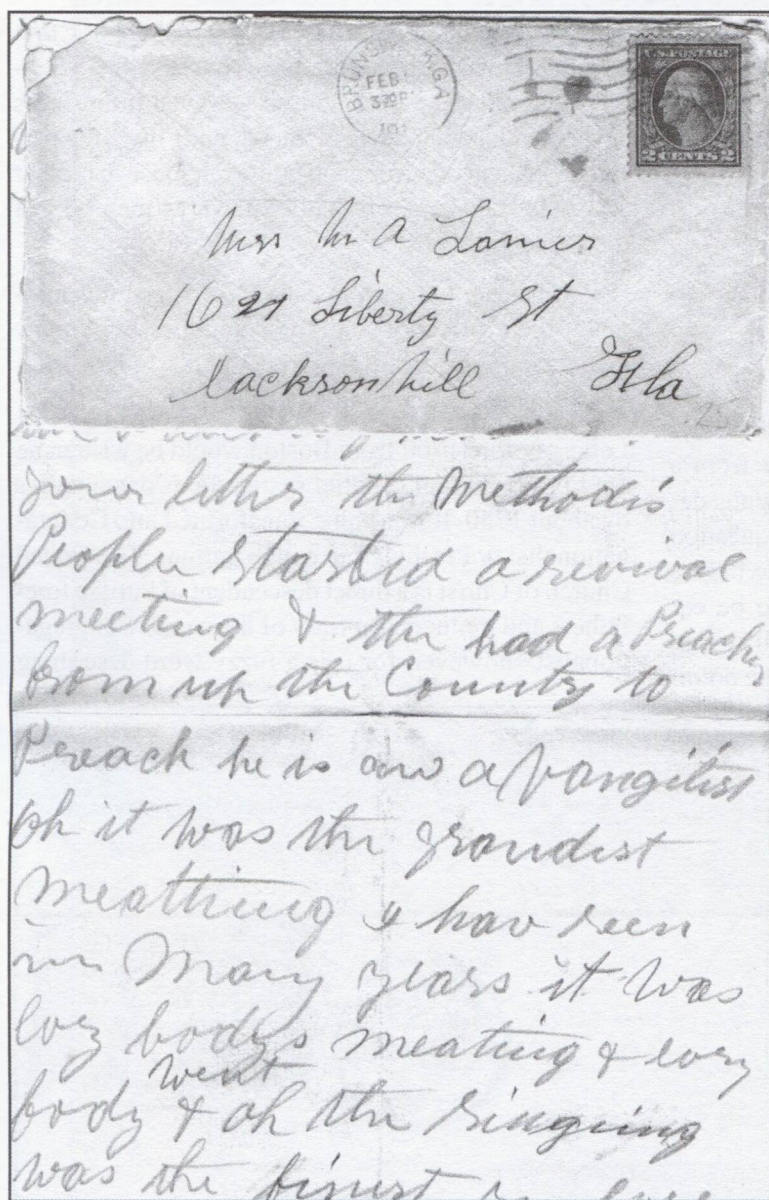 BRUNSWICK, GA
FEB
3 30 P
191
U.S. POSTAGE
2 CENTS 2
Mrs M A Lanier
1621 Liberty St
Jacksonhill Fla
your letter the Methodis
People started a revival
meeting & the had a Preacher
from up the County to
Preach he is an a vangilist
oh it was the grandist
Meathing I hav seen
in Many years it was
evry bodys meating & evry
body went & oh the singing
was the finest